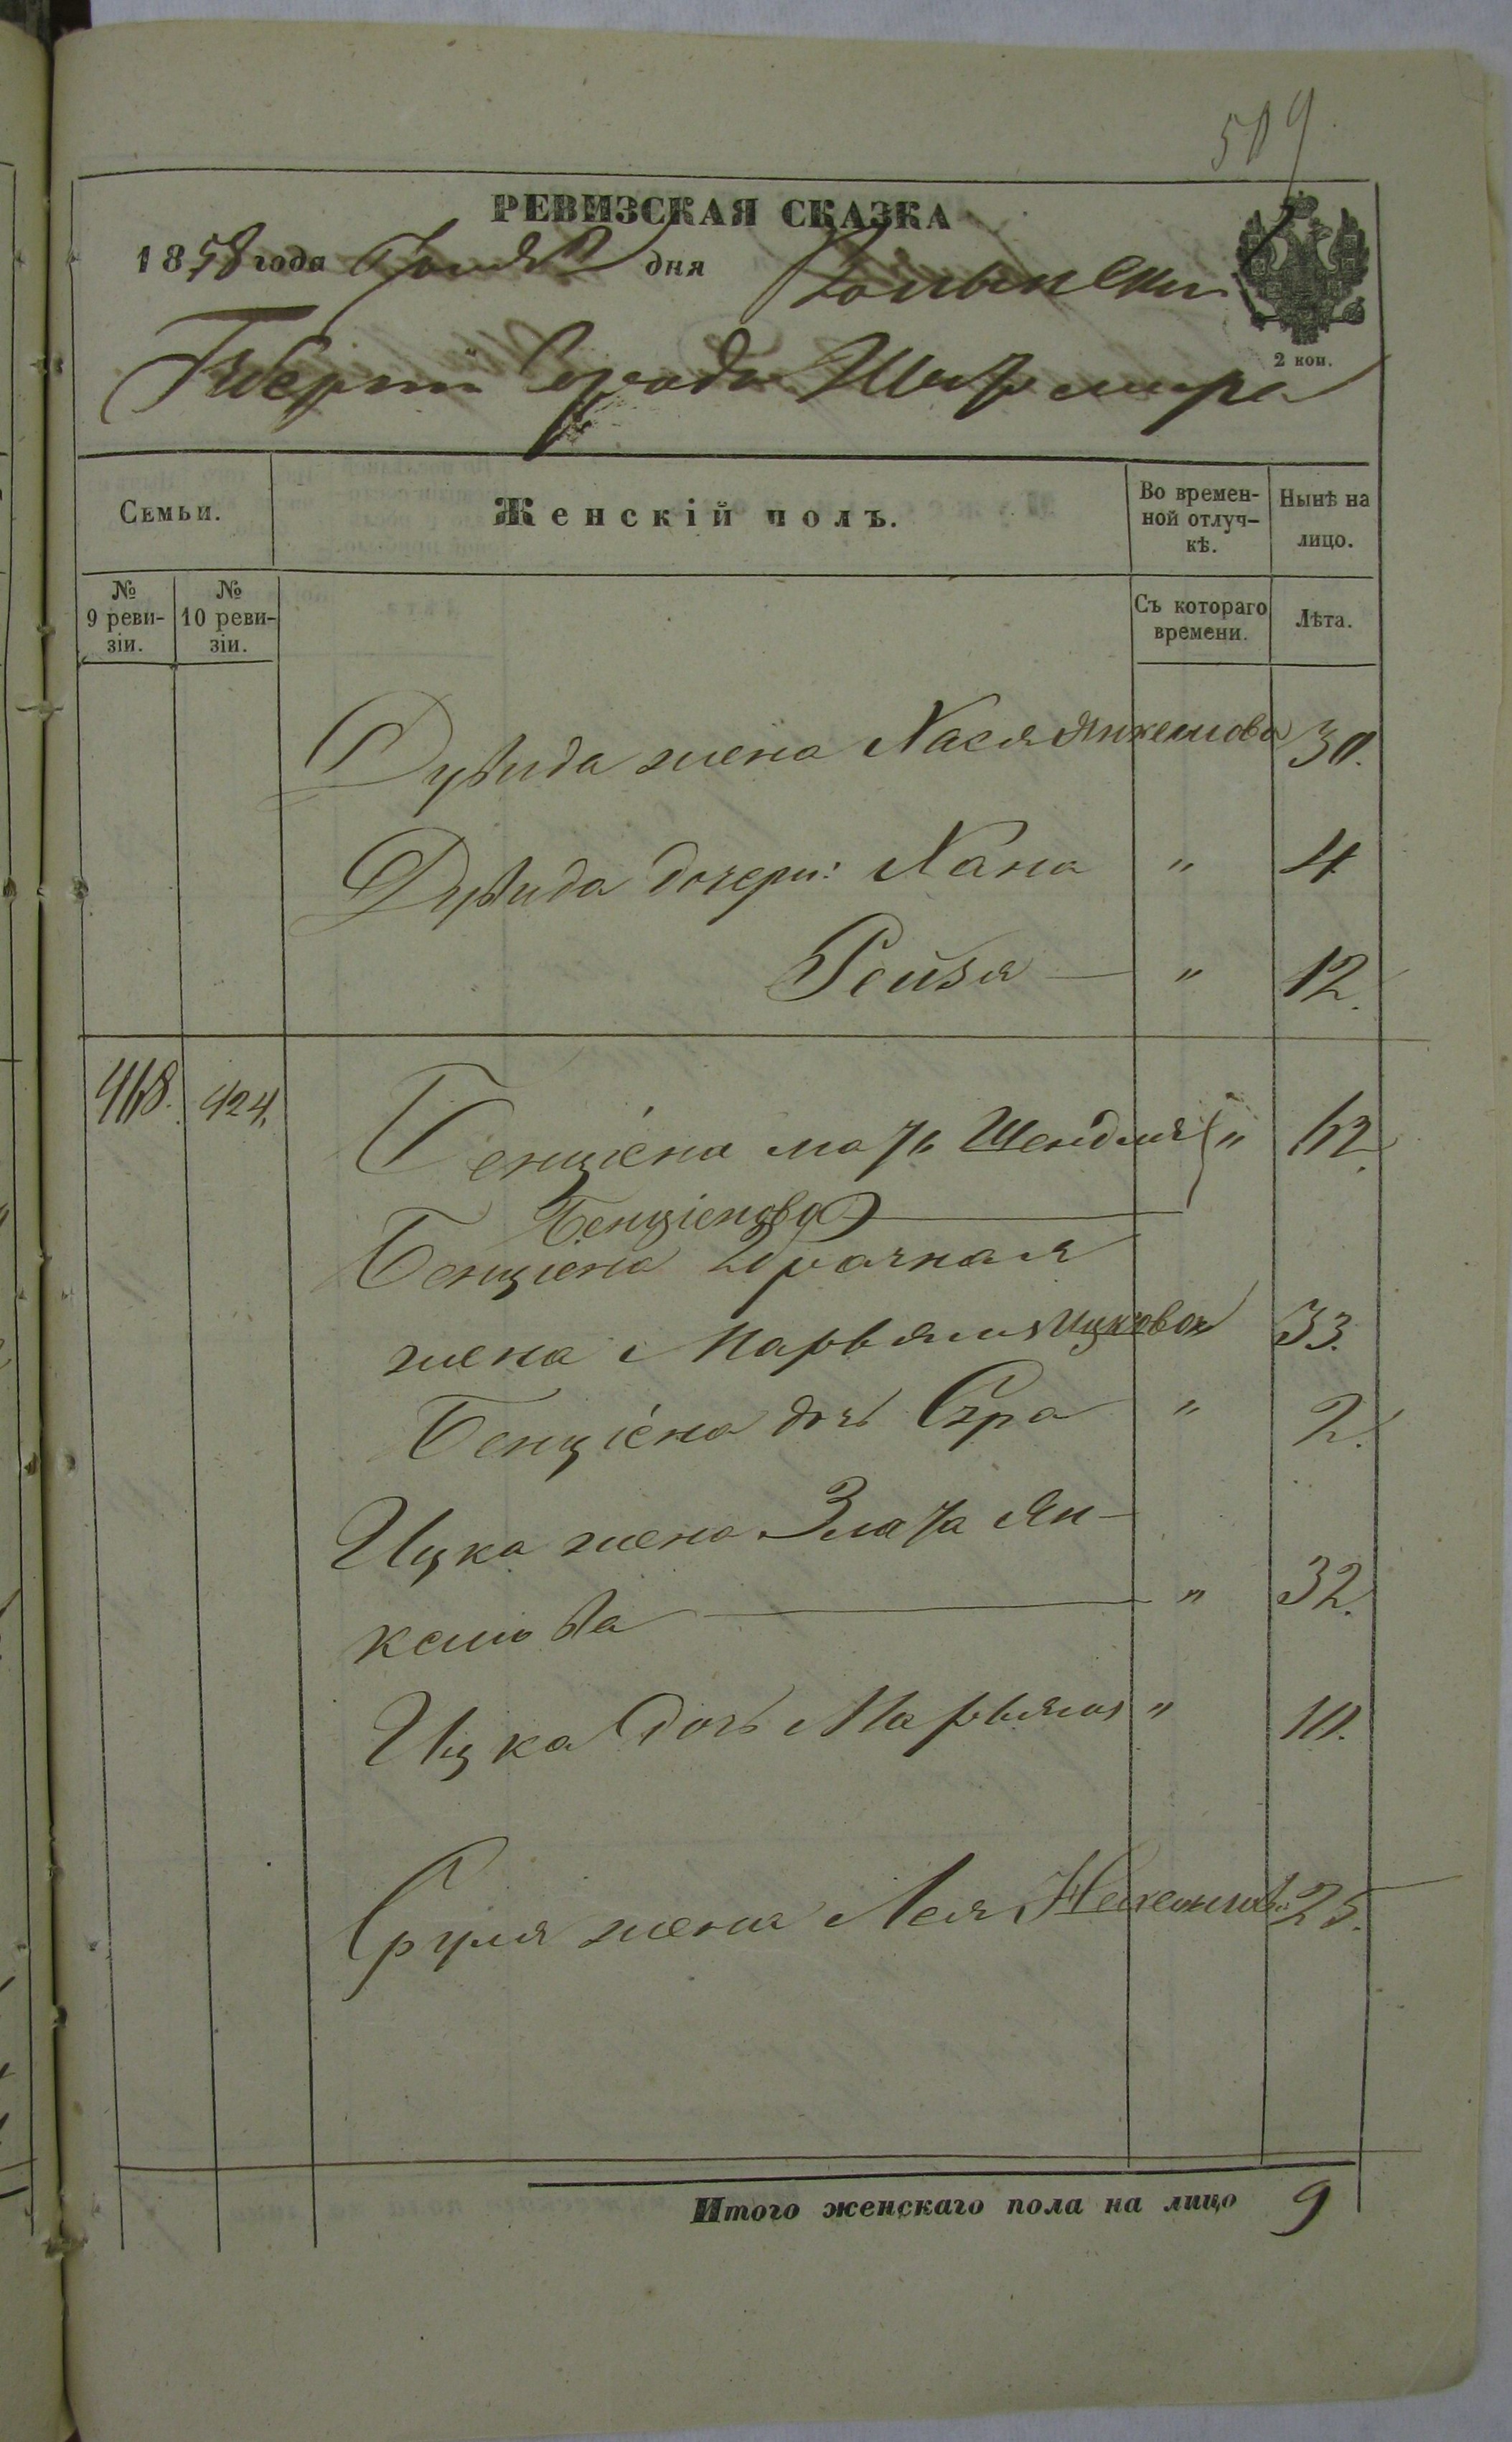 509
РЕВИЗСКАЯ СКАЗКА
1858 года Іюня дня Волынской
2 коп.
Губерніи Города Житомира
Семьи.
Женскій полъ.
Во времен-
ной отлуч-
кѣ.
Нынѣ на
лицо.
№
9 реви-
зіи.
№
10 реви-
зіи.
Съ котораго
времени.
Лѣта.
Дувида жена Хася Янкелова 30.
Дувида дочери: Хана " 4
Рейзя " 12.
468. 424.
Бенціона мать Шендля " 62.
Бенціонова
Бенціона 2 брачная
жена Марьямя Ицкова 33.
Бенціона дочь Сура " 2.
Ицка жена Злата Ян-
келова " 32.
Ицка дочь Марьямя " 10.
Сруля жена Лея 25.
Итого женскаго пола на лицо 9